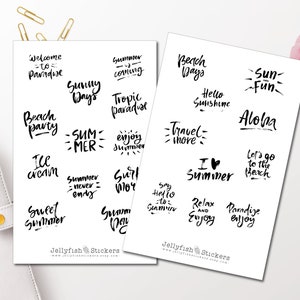 Welcome
to
Paradise
Summer
is
coming
Sunny
Days
Tropic
Paradise
Beach
party
SUM
MER
enjoy
summer
Ice
cream
Summer
never
ends
Surf
more
Sweet
Summer
Summer
Jellyfish Stickers
Beach
Days
Sun
Fun
Hello
Sunshine
Aloha
Travel
more
Let's go
to the
Beach
I
Summer
Say
Hello to
Summer
Relax
and
Enjoy
Paradise
enjoy
Jellyfish Stickers